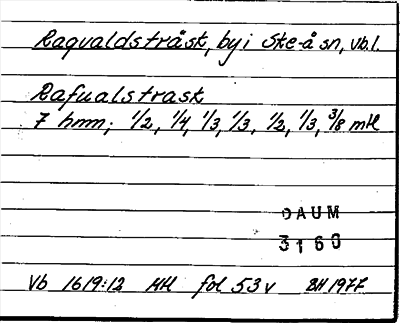 Ragvaldsträsk, by i Ske-å sn, Vb.l.
Rafualstrask
7 hmn; 1/2, 1/4, 1/3, 1/3, 1/2, 1/3, 3/8 mtl
DAUM
3160
Vb 1619:12 Mtl fol 53v BH 1977